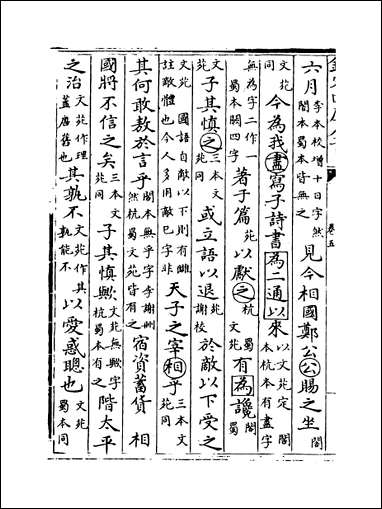 卷五
六月李本校增十日字然閣本蜀本皆無之見今相國鄭公公賜之坐閣
文苑同今為我盡寫子詩書為二通以來以文苑定閣本杭本有盡字
無為字二作一蜀本闕四字著于篇苑以獻之杭蜀文苑有為讒閣蜀
文苑子其慎之三本文苑同或立語以退謝校於敵以下受之
文苑國語自敵以下則有讎註敵體也今人多用敵已字非天子之宰相乎三本文苑同
其何敢敖於言乎閣本無乎字李謝刪然杭蜀文苑皆有之宿資蓄貨相
國將不信之矣三本文苑同子其慎歟文苑無歟字杭蜀本有之階太平
之治文苑作理蓋唐舊也其孰不文苑作其孰能不以愛惑聰也文苑蜀本同